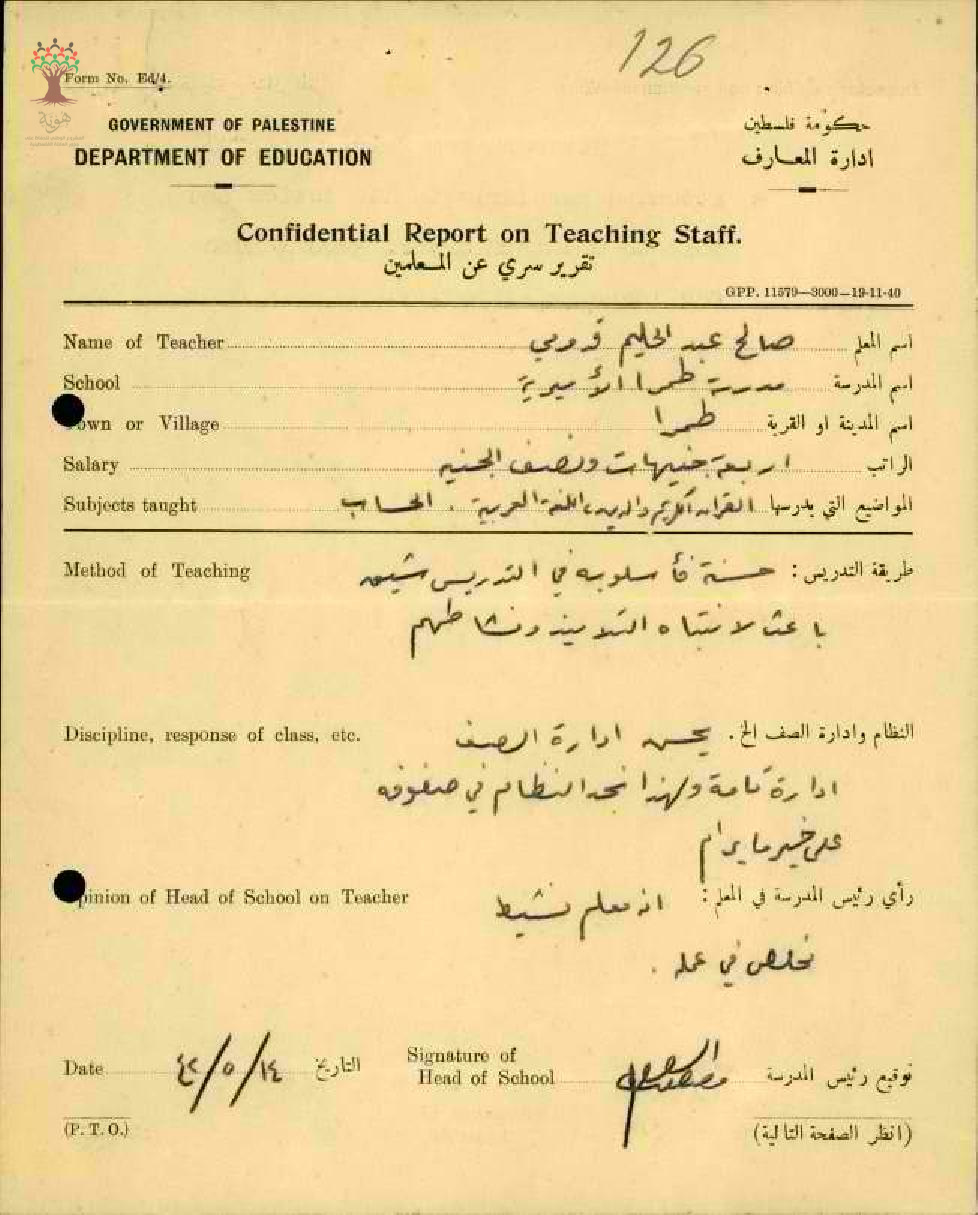 126
Form No. Ed/4.
هوية
GOVERNMENT OF PALESTINE
حكومة فلسطين
DEPARTMENT OF EDUCATION
ادارة المعارف
Confidential Report on Teaching Staff.
تقرير سري عن المعلمين
GPP. 11579—3000—19-11-40
Name of Teacher صالح عبد الحليم اسم المعلم
School مدرسة طمرا الأميرية اسم المدرسة
Town or Village طمرا اسم المدينة او القرية
Salary اربعة جنيهات ونصف الجنيه الراتب
Subjects taught القرآن الكريم والدين، اللغة العربية . الحساب المواضيع التي يدرسها
Method of Teaching حسنة فأسلوبه في التدريس شيق طريقة التدريس :
باعث لانتباه التلاميذ ونشاطهم
Discipline, response of class, etc. يحسن ادارة الصف النظام وادارة الصف الخ.
ادارة تامة ولهذا نجد النظام في صفوفه
على خير ما يرام
Opinion of Head of School on Teacher انه معلم نشيط رأي رئيس المدرسة في المعلم :
مخلص في عمله .
Date ١٤/٥/٤٢ التاريخ
Signature of Head of School توقيع رئيس المدرسة
(P. T. O.)
(انظر الصفحة التالية)